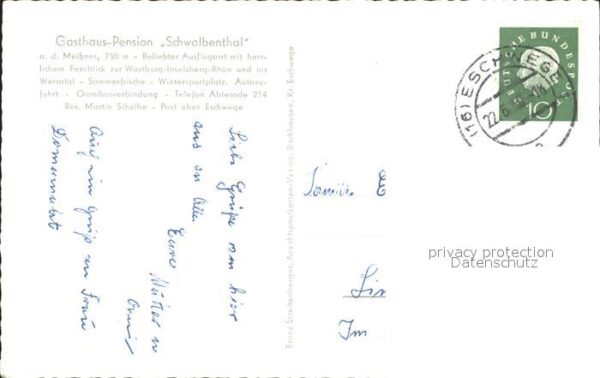 Gasthaus-Pension „Schwalbenthal"
a. d. Meißner, 750 m - Beliebter Ausflugsort mit herr-
lichem Fernblick zur Wartburg-Inselsberg-Rhön und ins
Werratal - Sommerfrische - Wintersportplatz. Autozu-
fahrt - Omnibusverbindung - Telefon Abterode 214
Bes. Martin Schülbe - Post über Eschwege
Grüße von hier
aus an Alle
Eure
Auch ein Gruß an Frau
Franz Streitenberger, Ansichtspostkarten-Verlag, Bischhausen, Kr. Eschwege
DEUTSCHE BUNDESPOST
10
(16) ESCHWEGE
22.6.
Familie E
Lin
Im
privacy protection
Datenschutz